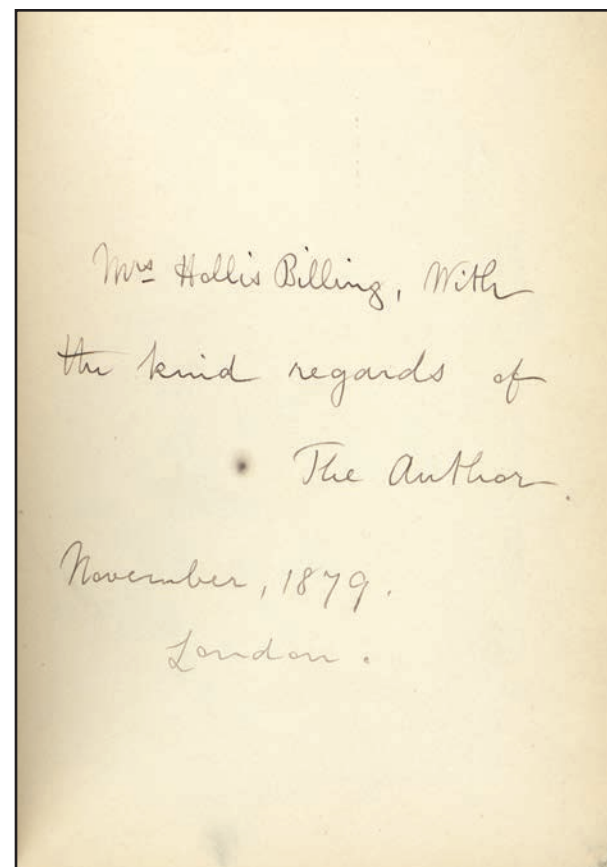 Mrs Hollis Billing, With
the kind regards of
The Author.
November, 1879.
London.